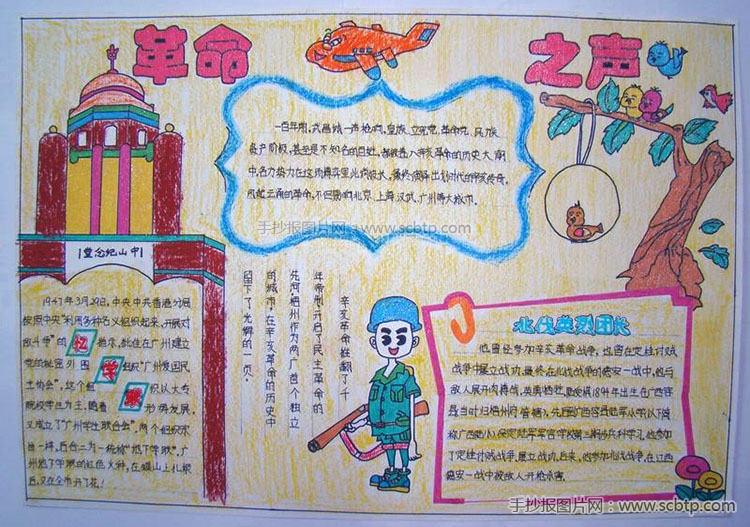 革命 之声
一百年前,武昌城一声枪响,皇族、立宪党、革命党、民族
资产阶级,甚至是不知名的百姓,都被卷入辛亥革命的历史大
中,各方势力在这
风起云涌的革命,不但影响北京、上海、汉武、广州等大城市,
手抄报图片网:www.scbtp.com
中山纪念堂
1947年3月29日,中央中共香港分局
按照中央"利用各种名义组织起来,开展对
敌斗争"的
指示,
在广州建立
党的秘密外围
组织"广州爱国民
主协会",这个组
织以大专
院校学生为主,随着
形势发展,
又成立了"广州学生联合会",两个组织
一样,后合二为一统称"地下学联",广
州地下学联的红色火种,在
上扎根
后,又在全市开了花!
忆
学
辛亥革命推翻了千
年帝制,开启了民主革命的
先河,梧州作为两广首个独立
的城市,在辛亥革命的历史中
留下了光辉的一页。
北伐英烈团长
他曾经参加辛亥革命战争,也曾在定桂讨贼
战争中屡立战功,最终在北伐战争的德安一战中,他与
敌人展开肉搏战,英勇牺牲。
1894年出生在广西容
县(当时归梧州府管辖),先后
广西
陆军小学(以下简
称广西陆小)、保定陆军军官学校第三期步兵科学习,他参加
了定桂讨贼战争,屡立战功,后来,他参加北伐战争,在江西
德安一战中被敌人开枪杀害。
手抄报图片网:www.scbtp.com